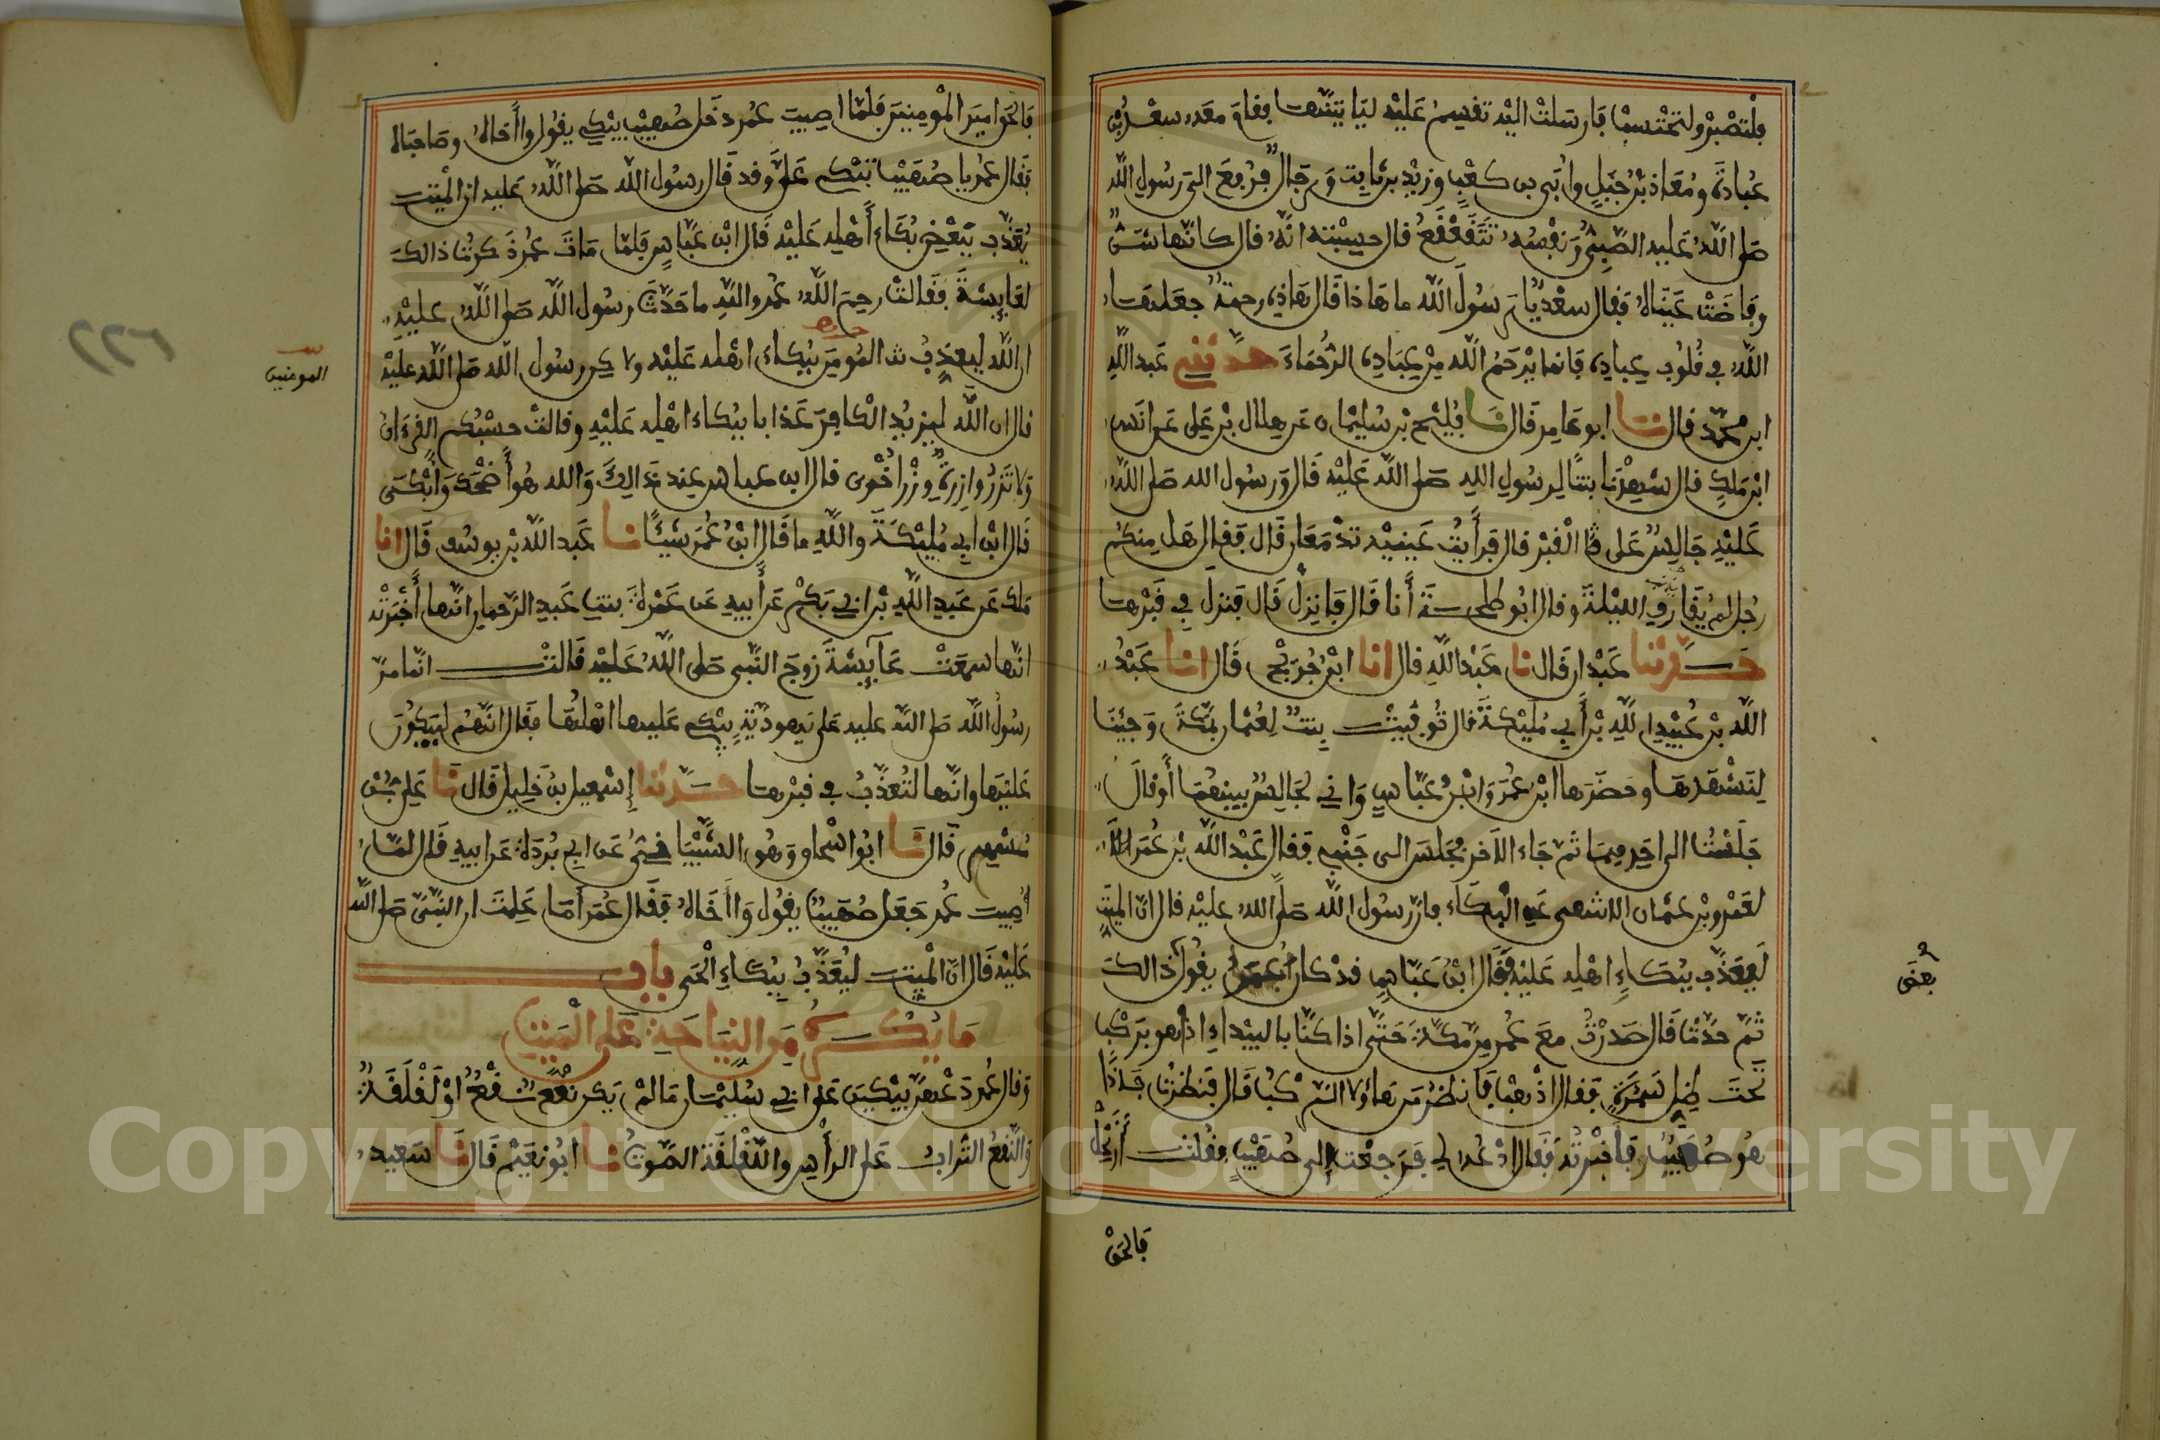 فلتصبر ولتحتسب فارسلت اليه تقسم عليه لياتينها فقام معه سعد بن
عبادة ومعاذ بن جبل وابي بن كعب وزيد بن ثابت ورجال فرفع الى رسول الله
صلى الله عليه الصبي ونفسه تتقعقع قال حسبته انه قال كانها شن
وفاضت عيناه فقال سعد يا رسول الله ما هاذا قال هاذه رحمة جعلها
الله في قلوب عباده فانما يرحم الله من عباده الرحماء حدثني عبد الله
ابن محمد قال نا ابو عامر قال نا فليح بن سليمان عن هلال بن علي عن انس
ابن ملك قال شهدنا بنتا لرسول الله صلى الله عليه قال ورسول الله صلى الله
عليه جالس على القبر قال فرأيت عينيه تدمعان قال فقال هل منكم
رجل لم يقارف الليلة وقال ابو طلحة أنا قال فانزل قال فنزل في قبرها
حدثنا عبدان قال نا عبد الله قال انا ابن جريج قال انا عبد
الله بن عبيد الله بن أبي مليكة قال توفيت بنت لعثمان بمكة وجئنا
لنشهدها وحضرها ابن عمر وابن عباس واني لجالس بينهما أو قال
جلست الى احدهما ثم جاء الاخر فجلس الى جنبي فقال عبد الله بن عمر
لعمرو بن عثمان الا تنهى عن البكاء فان رسول الله صلى الله عليه قال ان الميت
ليعذب ببكاء اهله عليه فقال ابن عباس قد كان عمر يقول ذالك
بعض
ثم حدث قال صدرت مع عمر من مكة حتى اذا كنا بالبيداء اذا هو بركب
تحت ظل سمرة فقال اذهب فانظر من هاؤلاء الركب قال فنظرت فاذا
هو صهيب فأخبرته فقال ادعه لي فرجعت الى صهيب فقلت أرتحل
فالحق
فالحق امير المومنين فلما اصيب عمر دخل صهيب يبكي يقول وا أخاه وصاحباه
فقال عمر يا صهيب تبكي علي وقد قال رسول الله صلى الله عليه ان الميت
يعذب ببعض بكاء أهله عليه قال ابن عباس فلما مات عمر ذكرت ذالك
لعايشة فقالت رحم الله عمر والله ما حدث رسول الله صلى الله عليه
ان الله ليعذب المومن ببكاء اهله عليه ولاكن رسول الله صلى الله عليه
المومنين
قال ان الله ليزيد الكافر عذابا ببكاء اهله عليه وقالت حسبكم القرءان
ولا تزر وازرة وزر أخرى قال ابن عباس عند ذالك والله هو أضحك وأبكى
قال ابن ابي مليكة والله ما قال ابن عمر شيئا نا عبد الله بن يوسف قال انا
ملك عن عبد الله بن ابي بكر عن أبيه عن عمرة بنت عبد الرحمان انها أخبرته
انها سمعت عايشة زوج النبي صلى الله عليه قالت انما مر
رسول الله صلى الله عليه على يهودية يبكي عليها اهلها فقال انهم ليبكون
عليها وانها لتعذب في قبرها حدثنا إسمعيل بن خليل قال نا علي بن
مسهر قال نا ابو اسحاق وهو الشيباني عن ابي بردة عن ابيه قال لما
أصيب عمر جعل صهيب يقول وا أخاه فقال عمر أما علمت ان النبي صلى الله
عليه قال ان الميت ليعذب ببكاء الحي باب
ما يكره من النياحة على الميت
وقال عمر دعهن يبكين على ابي سليمان ما لم يكن نقع او لقلقة
والنقع التراب على الرأس واللقلقة الصوت نا ابو نعيم قال نا سعيد
Copyright © King Saud University